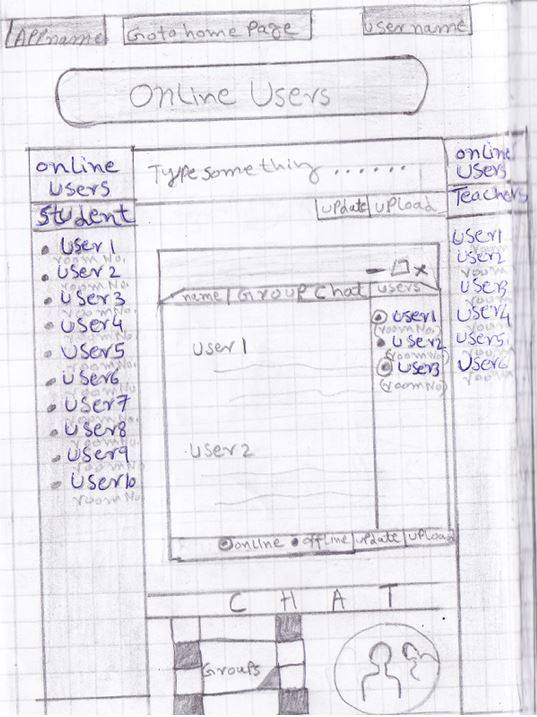 APPname Goto home Page username
Online Users
online
users
Student
User1
room No.
User2
room No.
User3
room No.
User4
room No.
User5
room No.
User6
room No.
User7
room No.
User8
room No.
User9
room No.
User10
room No.
Type something ......
update upload
name Group Chat users
User1
User2
User1
(room No.)
User2
(room No.)
User3
(room No)
online offline update upload
online
users
Teachers
User1
room
User2
room
User3
room
User4
room
User5
room
User6
room
CHAT
Groups